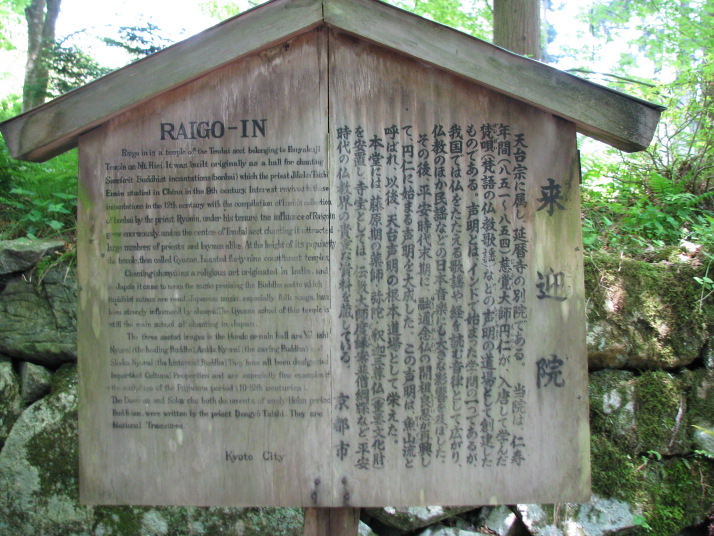 RAIGO-IN
Raigo in is a temple of the Tendai sect belonging to Enryakuji
Temple on Mt. Hiei. It was built originally as a hall for chanting
Sanskrit Buddhist incantations (bonbai) which the priest Jikaku Taishi
Ennin studied in China in the 9th century. Interest revived in these
incantations in the 12th century with the compilation of
of bonbai by the priest Ryonin, under his tenure the influence of Raigoin
grew enormously, and as the centre of Tendai sect chanting it attracted
large numbers of priests and laymen alike. At the height of its popularity
the temple, then called Gyozan, boasted forty-nine constituent temples.
Chanting (shomyo) as a religious art originated in India, and
in Japan it came to mean the music praising the Buddha and to which
Buddhist sutras are read. Japanese music, especially folk songs, have
been strongly influenced by shomyo. The Gyozan school of this temple is
still the main school of chanting in Japan.
The three seated images in the temple's main hall are Yakushi
Nyorai (the healing Buddha), Amida Nyorai (the saving Buddha) and
Shaka Nyorai (the historical Buddha). They have all been designated
Important Cultural Properties and are especially fine examples of
the sculpture of the Fujiwara period (10-12th centuries).
documents of early Heian period
Buddhism, were written by the priest Dengyo Taishi. They are
National Treasures.
Kyoto City
来迎院
天台宗に属し、延暦寺の別院である。 当院は、仁寿
年間(八五一〜八五四)慈覚大師円仁が、入唐して学んだ
梵唄(梵語の仏教歌謡)などの声明の道場として創建した
ものである。声明とは、インドで始まった学問の一つであるが、
我国では仏をたたえる歌謡や経を読む音律として広がり、
仏教のほか民謡などの日本音楽にも大きな影響を及ぼした。
その後、平安時代末期に、融通念仏の開祖良忍が再興し
て、円仁に始まる声明を大成した。この声明は、魚山流と
呼ばれ、以後、天台声明の根本道場として栄えた。
本堂には、藤原期の薬師・弥陀・釈迦三尊仏(重要文化財)
を安置し、寺宝としては、伝教大師度縁案並僧綱牒など平安
時代の仏教界の貴重な資料を蔵している。
京都市